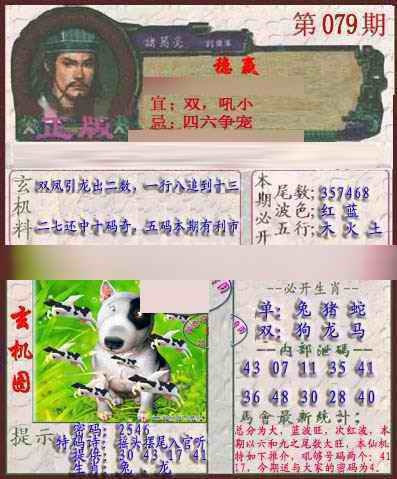 第079期
諸葛亮
稳赢
宜：双，吼小
忌：四六争宠
正版
玄机料
双凤引龙出二数，一行入追到十三
二七还中十码奇，五码本期有利市
本期必开
尾数：357468
波色：红 蓝
五行：木 火 土
玄机图
--必开生肖--
单：兔 猪 蛇
双：狗 龙 马
--内部泄码--
43 07 11 35 41
36 48 30 28 40
马會最新统计：
总分为大，蓝波旺，次红波，本
期以六和九之尾数大旺，本仙机
特如下推介，吼够号码两个：41
17，今期送与大家的密码为4．
提示
密码：2546
特码诗：摇头摆尾入官听
提供：30 43 17 41
生肖：兔．龙